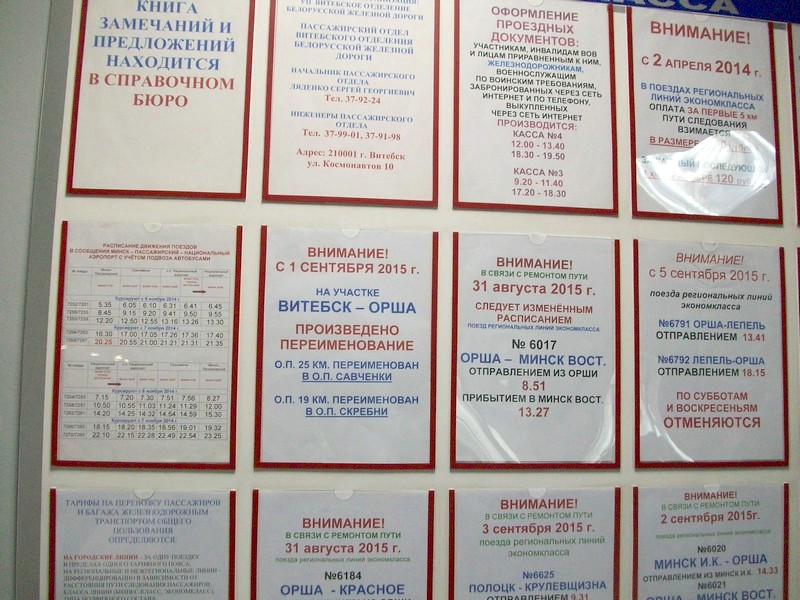 КАССА
КНИГА
ЗАМЕЧАНИЙ И
ПРЕДЛОЖЕНИЙ
НАХОДИТСЯ
В СПРАВОЧНОМ
БЮРО
УП ВИТЕБСКОЕ ОТДЕЛЕНИЕ
БЕЛОРУССКОЙ ЖЕЛЕЗНОЙ ДОРОГИ
ПАССАЖИРСКИЙ ОТДЕЛ
ВИТЕБСКОГО ОТДЕЛЕНИЯ
БЕЛОРУССКОЙ ЖЕЛЕЗНОЙ
ДОРОГИ
НАЧАЛЬНИК ПАССАЖИРСКОГО
ОТДЕЛА
ЛЯДЕНКО СЕРГЕЙ ГЕОРГИЕВИЧ
Тел. 37-92-24
ИНЖЕНЕРЫ ПАССАЖИРСКОГО
ОТДЕЛА
Тел. 37-99-01, 37-91-98
Адрес: 210001 г. Витебск
ул. Космонавтов 10
ОФОРМЛЕНИЕ
ПРОЕЗДНЫХ
ДОКУМЕНТОВ:
УЧАСТНИКАМ, ИНВАЛИДАМ ВОВ
И ЛИЦАМ ПРИРАВНЕННЫМ К НИМ,
ЖЕЛЕЗНОДОРОЖНИКАМ,
ВОЕННОСЛУЖАЩИМ
ПО ВОИНСКИМ ТРЕБОВАНИЯМ,
ЗАБРОНИРОВАННЫХ ЧЕРЕЗ СЕТЬ
ИНТЕРНЕТ И ПО ТЕЛЕФОНУ,
ВЫКУПЛЕННЫХ
ЧЕРЕЗ СЕТЬ ИНТЕРНЕТ
ПРОИЗВОДИТСЯ:
КАССА №4
12.00 - 13.40
18.30 - 19.50
КАССА №3
9.20 - 11.40
17.20 - 18.30
ВНИМАНИЕ!
С 2 АПРЕЛЯ 2014 г.
В ПОЕЗДАХ РЕГИОНАЛЬНЫХ
ЛИНИЙ ЭКОНОМКЛАССА
ОПЛАТА ЗА ПЕРВЫЕ 5 КМ
ПУТИ СЛЕДОВАНИЯ
ВЗИМАЕТСЯ
В РАЗМЕРЕ
120
РАСПИСАНИЕ ДВИЖЕНИЯ ПОЕЗДОВ
В СООБЩЕНИИ МИНСК – ПАССАЖИРСКИЙ – НАЦИОНАЛЬНЫЙ
АЭРОПОРТ С УЧЁТОМ ПОДВОЗА АВТОБУСАМИ
Курсируют с 8 ноября 2014 г
5.35 6.05 6.10 6.31 6.41 6.45
8.45 9.15 9.20 9.41 9.50 9.55
12.20 12.50 12.55 13.16 13.26 13.30
Курсируют с 7 ноября 2014 г
16.30 17.00 17.05 17.26 17.36 17.40
20.25 20.55 21.00 21.21 21.31 21.35
Курсируют с 8 ноября 2014 г
7.15 7.20 7.30 7.51 7.56 8.27
10.50 10.55 11.03 11.24 11.29 12.00
14.20 14.25 14.32 14.54 14.59 15.30
Курсируют с 7 ноября 2014 г
18.15 18.20 18.35 18.56 19.01 19.32
22.10 22.15 22.28 22.49 22.54 23.25
ВНИМАНИЕ!
С 1 СЕНТЯБРЯ 2015 г.
НА УЧАСТКЕ
ВИТЕБСК – ОРША
ПРОИЗВЕДЕНО
ПЕРЕИМЕНОВАНИЕ
О.П. 25 КМ. ПЕРЕИМЕНОВАН
В О.П. САВЧЕНКИ
О.П. 19 КМ. ПЕРЕИМЕНОВАН
В О.П. СКРЕБНИ
ВНИМАНИЕ!
В СВЯЗИ С РЕМОНТОМ ПУТИ
31 августа 2015 г.
СЛЕДУЕТ ИЗМЕНЁННЫМ
РАСПИСАНИЕМ
ПОЕЗД РЕГИОНАЛЬНЫХ ЛИНИЙ ЭКОНОМКЛАССА
№ 6017
ОРША – МИНСК ВОСТ.
ОТПРАВЛЕНИЕМ ИЗ ОРШИ
8.51
ПРИБЫТИЕМ В МИНСК ВОСТ.
13.27
ВНИМАНИЕ!
с 5 сентября 2015 г.
поезда региональных линий
экономкласса
№6791 ОРША-ЛЕПЕЛЬ
ОТПРАВЛЕНИЕМ 13.41
№6792 ЛЕПЕЛЬ-ОРША
ОТПРАВЛЕНИЕМ 18.15
ПО СУББОТАМ
И ВОСКРЕСЕНЬЯМ
ОТМЕНЯЮТСЯ
ТАРИФЫ НА ПЕРЕВОЗКУ ПАССАЖИРОВ
И БАГАЖА ЖЕЛЕЗНОДОРОЖНЫМ
ТРАНСПОРТОМ ОБЩЕГО
ПОЛЬЗОВАНИЯ
ОПРЕДЕЛЯЮТСЯ:
НА ГОРОДСКИЕ ЛИНИИ - ЗА ОДНУ ПОЕЗДКУ
В ПРЕДЕЛАХ ОДНОГО ТАРИФНОГО ПОЯСА,
НА РЕГИОНАЛЬНЫЕ И МЕЖРЕГИОНАЛЬНЫЕ ЛИНИИ -
ДИФФЕРЕНЦИРОВАННО В ЗАВИСИМОСТИ ОТ
РАССТОЯНИЯ ПУТИ СЛЕДОВАНИЯ ПАССАЖИРОВ,
КЛАССА ЛИНИИ (БИЗНЕС-КЛАСС, ЭКОНОМКЛАСС),
ТИПА ПОДВИЖНОГО СОСТАВА.
ВНИМАНИЕ!
В СВЯЗИ С РЕМОНТОМ ПУТИ
31 августа 2015 г.
поезда региональных линий экономкласса
№6184
ОРША - КРАСНОЕ
ВНИМАНИЕ!
В СВЯЗИ С РЕМОНТОМ ПУТИ
3 сентября 2015г.
поезда региональных линий
экономкласса
№6625
ПОЛОЦК - КРУЛЕВЩИЗНА
ОТПРАВЛЕНИЕМ 9.31
ВНИМАНИЕ!
В СВЯЗИ С РЕМОНТОМ ПУТИ
2 сентября 2015г.
поезда региональных линий экономкласса
№6020
МИНСК И.К. - ОРША
ОТПРАВЛЕНИЕМ ИЗ МИНСК И.К. 14.33
№6021